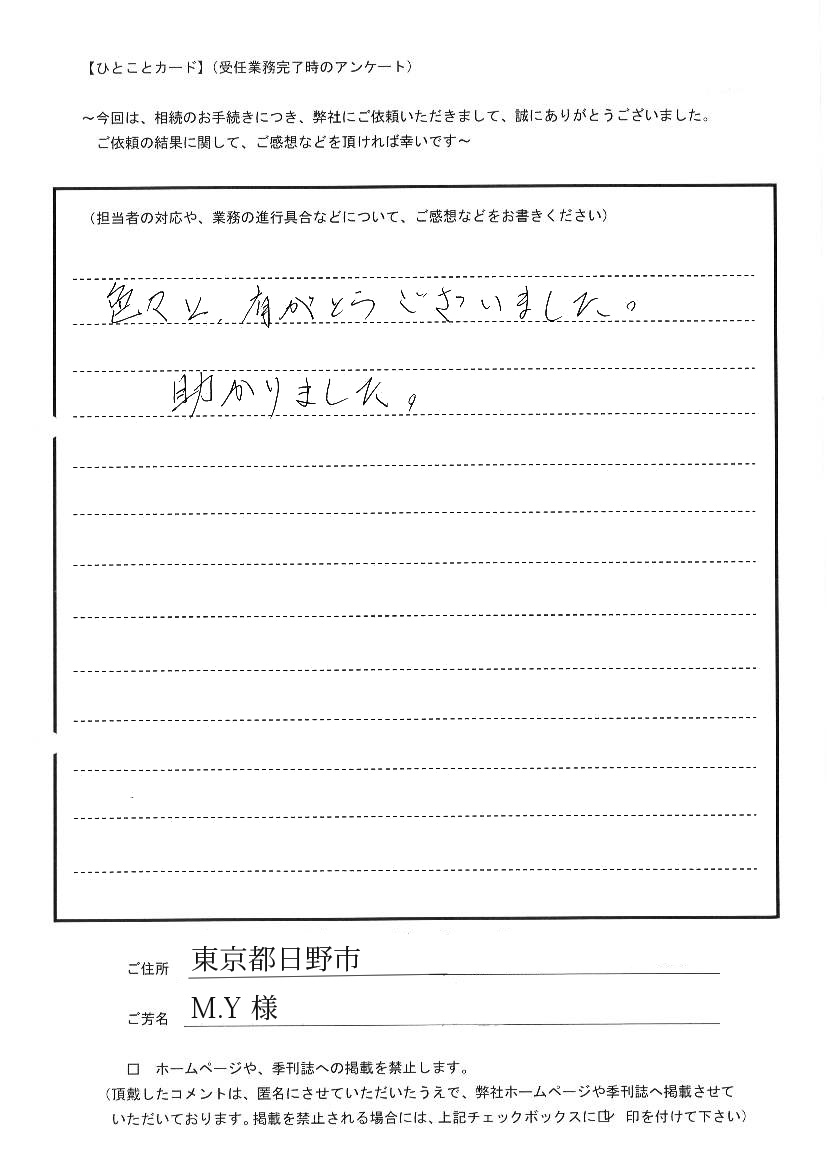 【ひとことカード】(受任業務完了時のアンケート)
～今回は、相続のお手続きにつき、弊社にご依頼いただきまして、誠にありがとうございました。
ご依頼の結果に関して、ご感想などを頂ければ幸いです～
(担当者の対応や、業務の進行具合などについて、ご感想などをお書きください)
色々と、有がとうございました。
助かりました。
ご住所 東京都日野市
ご芳名 M.Y 様
□ ホームページや、季刊誌への掲載を禁止します。
(頂戴したコメントは、匿名にさせていただいたうえで、弊社ホームページや季刊誌へ掲載させて
いただいております。掲載を禁止される場合には、上記チェックボックスに☑ 印を付けて下さい)